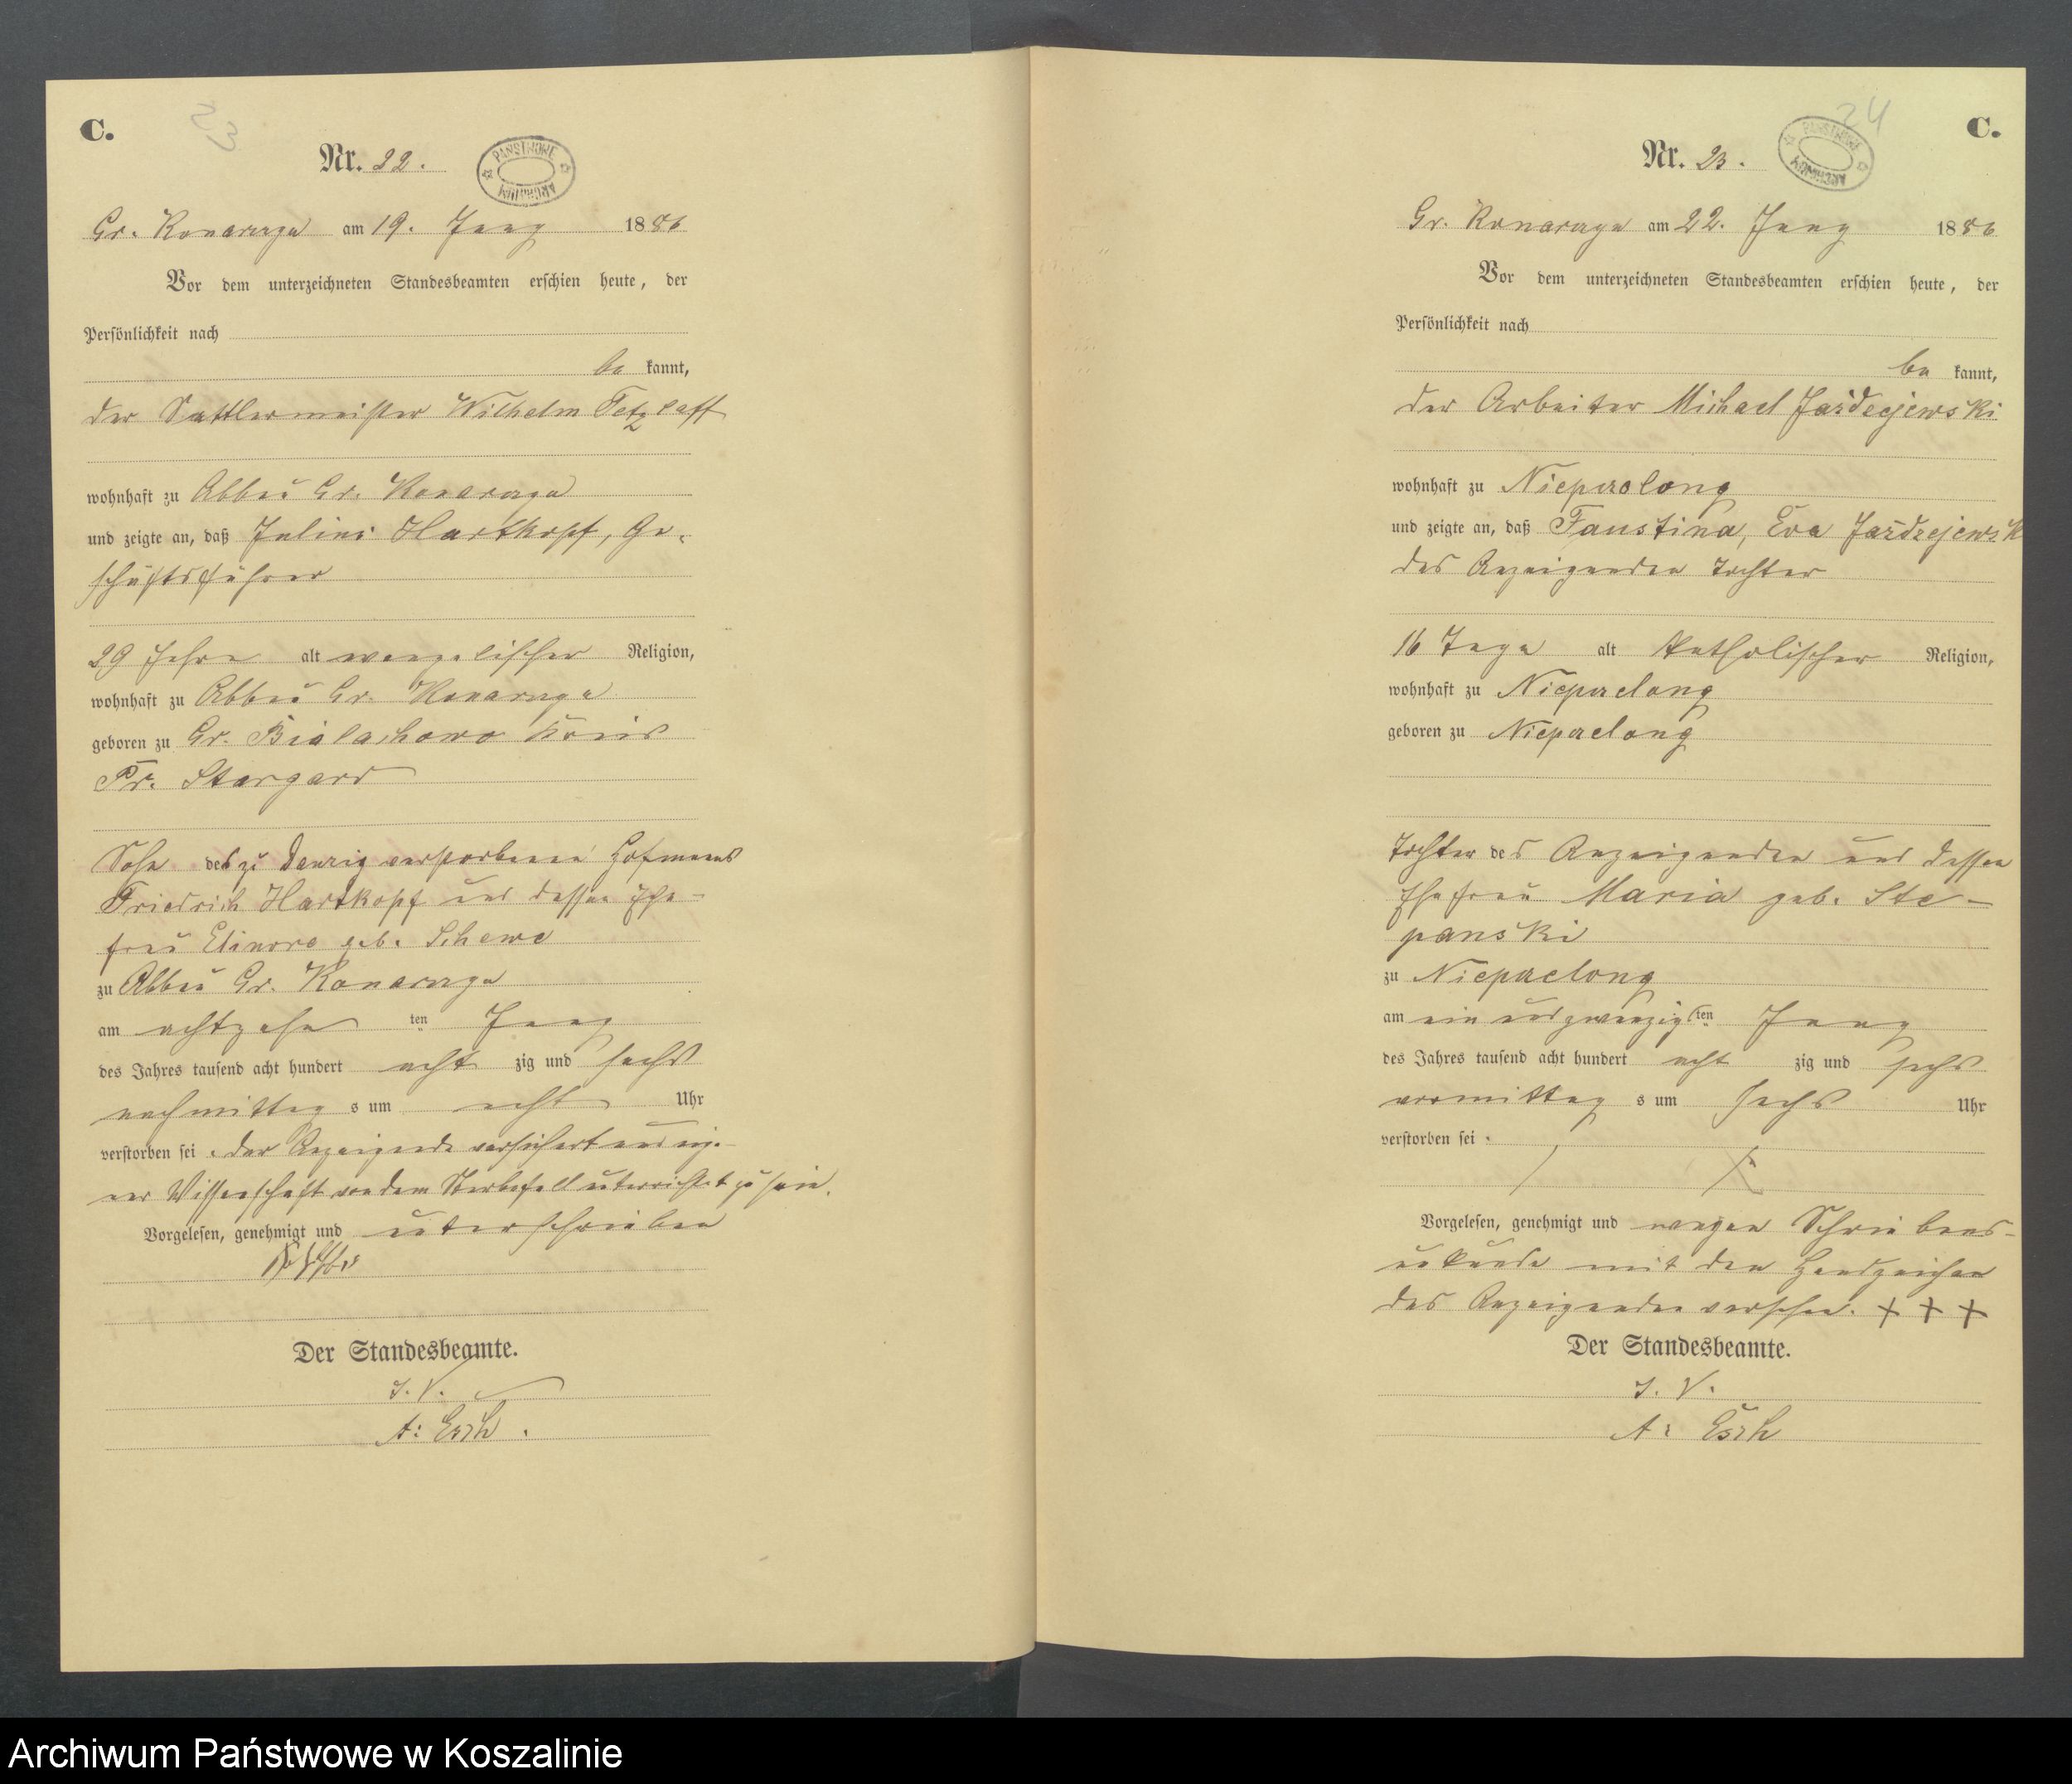 C.
Nr. 22.
PAŃSTWOWE ARCHIWUM
Gr. Konarczyn am 19. Juny 1886
Vor dem unterzeichneten Standesbeamten erschien heute, der
Persönlichkeit nach
be kannt,
der Sattlermeister Wilhelm Tetzlaff
wohnhaft zu Abbau Gr. Konarczyn
und zeigte an, daß Julius Hartkopf, Ge-
schäftsführer
29 Jahre alt evangelischer Religion,
wohnhaft zu Abbau Gr. Konarczyn
geboren zu Gr. Bialachowo Kreis
Pr. Stargard
Sohn des zu Danzig verstorbenen Hofmanns
Friedrich Hartkopf und dessen Ehe-
frau Elinore geb. Schewe
zu Abbau Gr. Konarczyn
am achtzehn ten Juny
des Jahres tausend acht hundert acht zig und sechs
nachmittag s um acht Uhr
verstorben sei. Der Anzeigende versichert aus eige-
ner Wissenschaft von dem Sterbefall unterrichtet zu sein.
Vorgelesen, genehmigt und unterschrieben
Der Standesbeamte.
J. V.
A: Esch.
24
C.
Nr. 23.
PAŃSTWOWE ARCHIWUM
Gr. Konarczyn am 22. Juny 1886
Vor dem unterzeichneten Standesbeamten erschien heute, der
Persönlichkeit nach
be kannt,
der Arbeiter Michael Jażdzejewski
wohnhaft zu Niepszelong
und zeigte an, daß Faustina, Eva Jażdzejewsk
des Anzeigenden Tochter
16 Tage alt katholischer Religion,
wohnhaft zu Niepszelong
geboren zu Niepszelong
Tochter des Anzeigenden und dessen
Ehefrau Maria geb. Ste-
panski
zu Niepszelong
am ein und zwanzigsten Juny
des Jahres tausend acht hundert acht zig und sechs
vormittag s um sechs Uhr
verstorben sei.
Vorgelesen, genehmigt und wegen Schreibens-
unkunde mit den Handzeichen
des Anzeigenden versehen. + + +
Der Standesbeamte.
J. V.
A: Esch
Archiwum Państwowe w Koszalinie